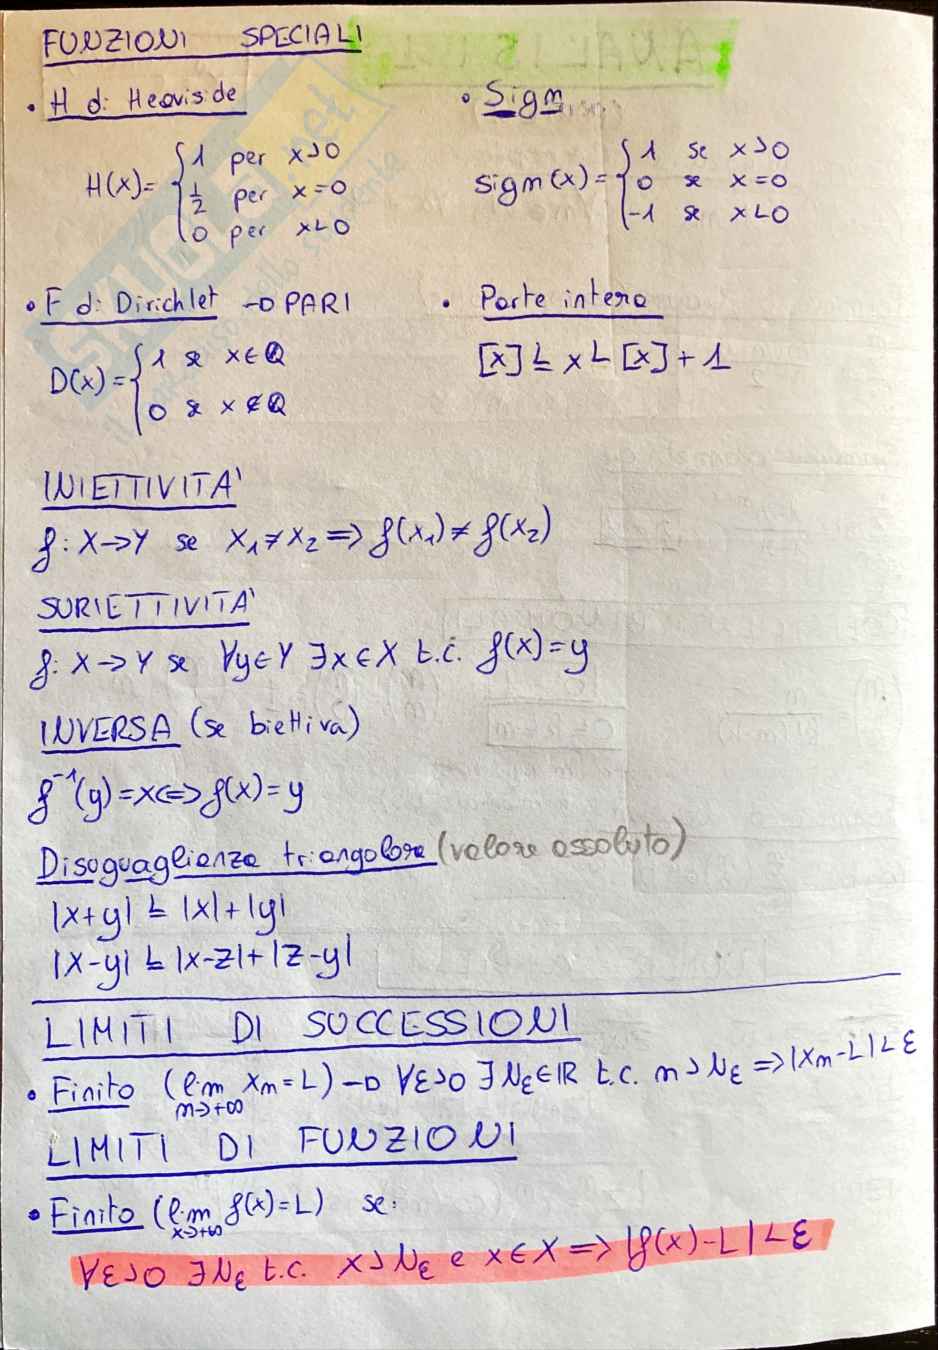 FUNZIONI SPECIALI
• H di Heaviside
H(x)= { 1 per x>0
1/2 per x=0
0 per x<0
• Sign
sign(x)= { 1 se x>0
0 se x=0
-1 se x<0
• F di Dirichlet → PARI
D(x)= { 1 se x∈Q
0 se x∉Q
• Parte intera
[x] ≤ x < [x]+1
INIETTIVITA'
f: X→Y se x₁≠x₂ ⇒ f(x₁)≠f(x₂)
SURIETTIVITA'
f: X→Y se ∀y∈Y ∃x∈X t.c. f(x)=y
INVERSA (se biettiva)
f⁻¹(y)=x⇔f(x)=y
Disuguaglianza triangolare (valore assoluto)
|x+y| ≤ |x|+|y|
|x-y| ≤ |x-z|+|z-y|
LIMITI DI SUCCESSIONI
• Finito (lim xn = L) → ∀ε>0 ∃Nε∈IR t.c. n>Nε ⇒ |xn-L|<ε
n→+∞
LIMITI DI FUNZIONI
• Finito (lim f(x)=L) se:
x→+∞
∀ε>0 ∃Nε t.c. x>Nε e x∈X ⇒ |f(x)-L|<ε